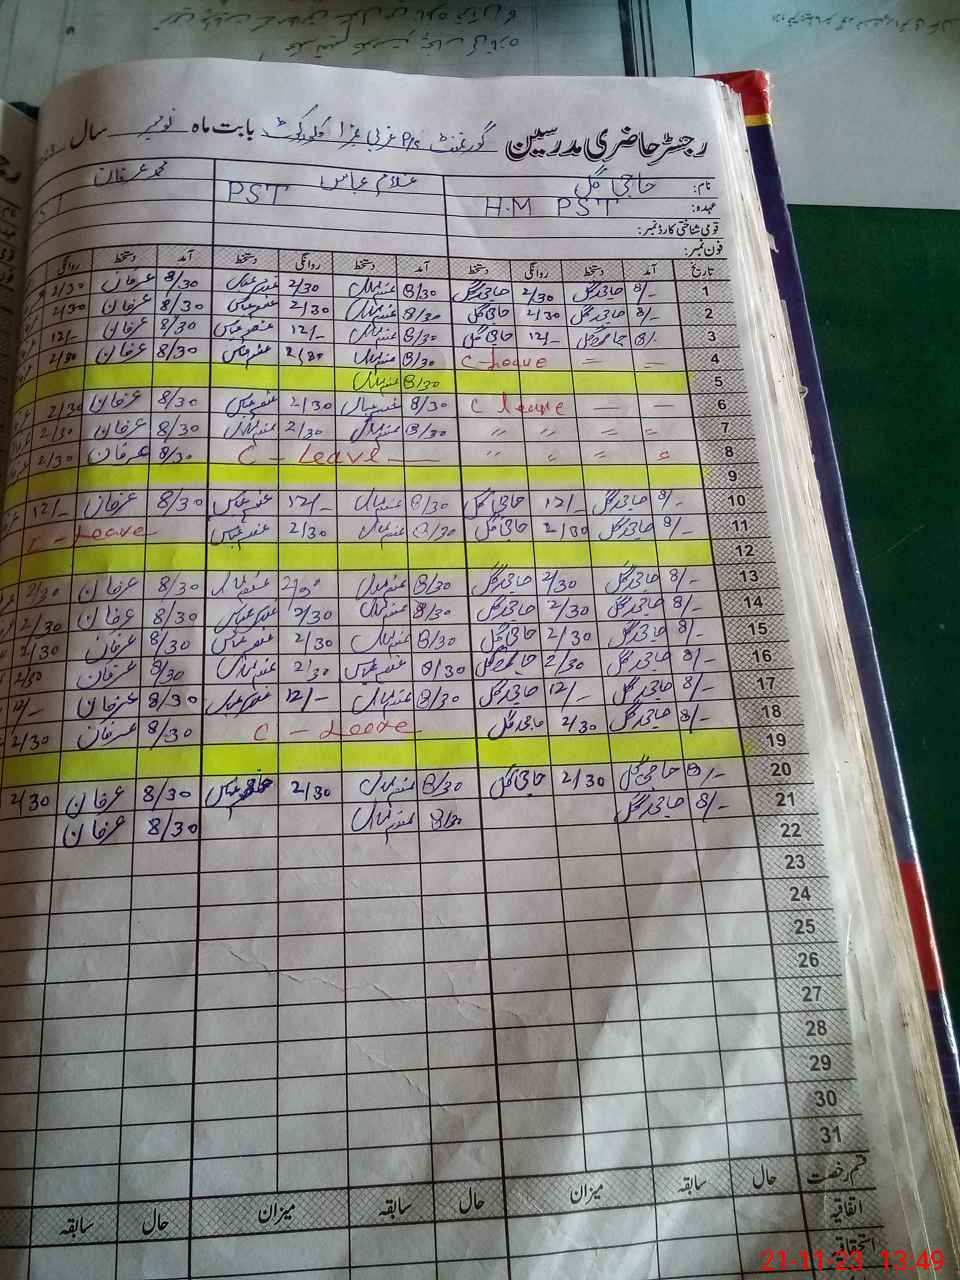 رجسٹر حاضری مدرسین گورنمنٹ P/S غربی عزا کلورکوٹ بابت ماہ نومبر سال
نام: حاجی گل غلام عباس محمد عرفان
عہدہ: H.M PST PST
قومی شناختی کارڈ نمبر:
فون نمبر:
تاریخ آمد دستخط روانگی دستخط آمد دستخط روانگی دستخط آمد دستخط روانگی
1 8/- حاجی گل 2/30 حاجی گل 8/30 غلام عباس 2/30 غلام عباس 8/30 عرفان 2/30
2 8/- حاجی گل 2/30 حاجی گل 8/30 غلام عباس 2/30 غلام عباس 8/30 عرفان 2/30
3 8/- حاجی گل 12/- حاجی گل 8/30 غلام عباس 12/- غلام عباس 8/30 عرفان 12/-
4 = = C-Leave 8/30 غلام عباس 2/30 غلام عباس 8/30 عرفان 2/30
5 8/30 غلام عباس
6 — — C leave 8/30 غلام عباس 2/30 غلام عباس 8/30 عرفان 2/30
7 〃 〃 〃 〃 8/30 غلام عباس 2/30 غلام عباس 8/30 عرفان 2/30
8 〃 〃 〃 〃 C - Leave — 8/30 عرفان 2/30
9
10 8/- حاجی گل 12/- حاجی گل 8/30 غلام عباس 12/- غلام عباس 8/30 عرفان 12/-
11 8/- حاجی گل 2/30 حاجی گل 8/30 غلام عباس 2/30 غلام عباس C - Leave
12
13 8/- حاجی گل 2/30 حاجی گل 8/30 غلام عباس 2/30 غلام عباس 8/30 عرفان 2/30
14 8/- حاجی گل 2/30 حاجی گل 8/30 غلام عباس 2/30 غلام عباس 8/30 عرفان 2/30
15 8/- حاجی گل 2/30 حاجی گل 8/30 غلام عباس 2/30 غلام عباس 8/30 عرفان 2/30
16 8/- حاجی گل 2/30 حاجی گل 8/30 غلام عباس 2/30 غلام عباس 8/30 عرفان 2/30
17 8/- حاجی گل 12/- حاجی گل 8/30 غلام عباس 12/- غلام عباس 8/30 عرفان 12/-
18 8/- حاجی گل 2/30 حاجی گل C - Leave 8/30 عرفان 2/30
19
20 8/- حاجی گل 2/30 حاجی گل 8/30 غلام عباس 2/30 غلام عباس 8/30 عرفان 2/30
21 8/- حاجی گل 8/30 غلام عباس 8/30 عرفان
22
23
24
25
26
27
28
29
30
31
قسم رخصت حال سابقہ میزان حال سابقہ میزان حال سابقہ
اتفاقیہ
استحقاقیہ
21-11-23 13:49